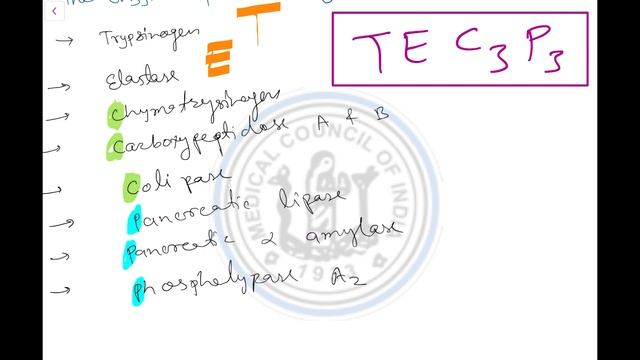 Trypsinogen T TE C3P3
Elastase E
Chymotrypsinogen
Carboxypeptidase A & B
Colipase
Pancreatic lipase
Pancreatic α amylase
Phospholypase A2
MEDICAL COUNCIL OF INDIA
1933